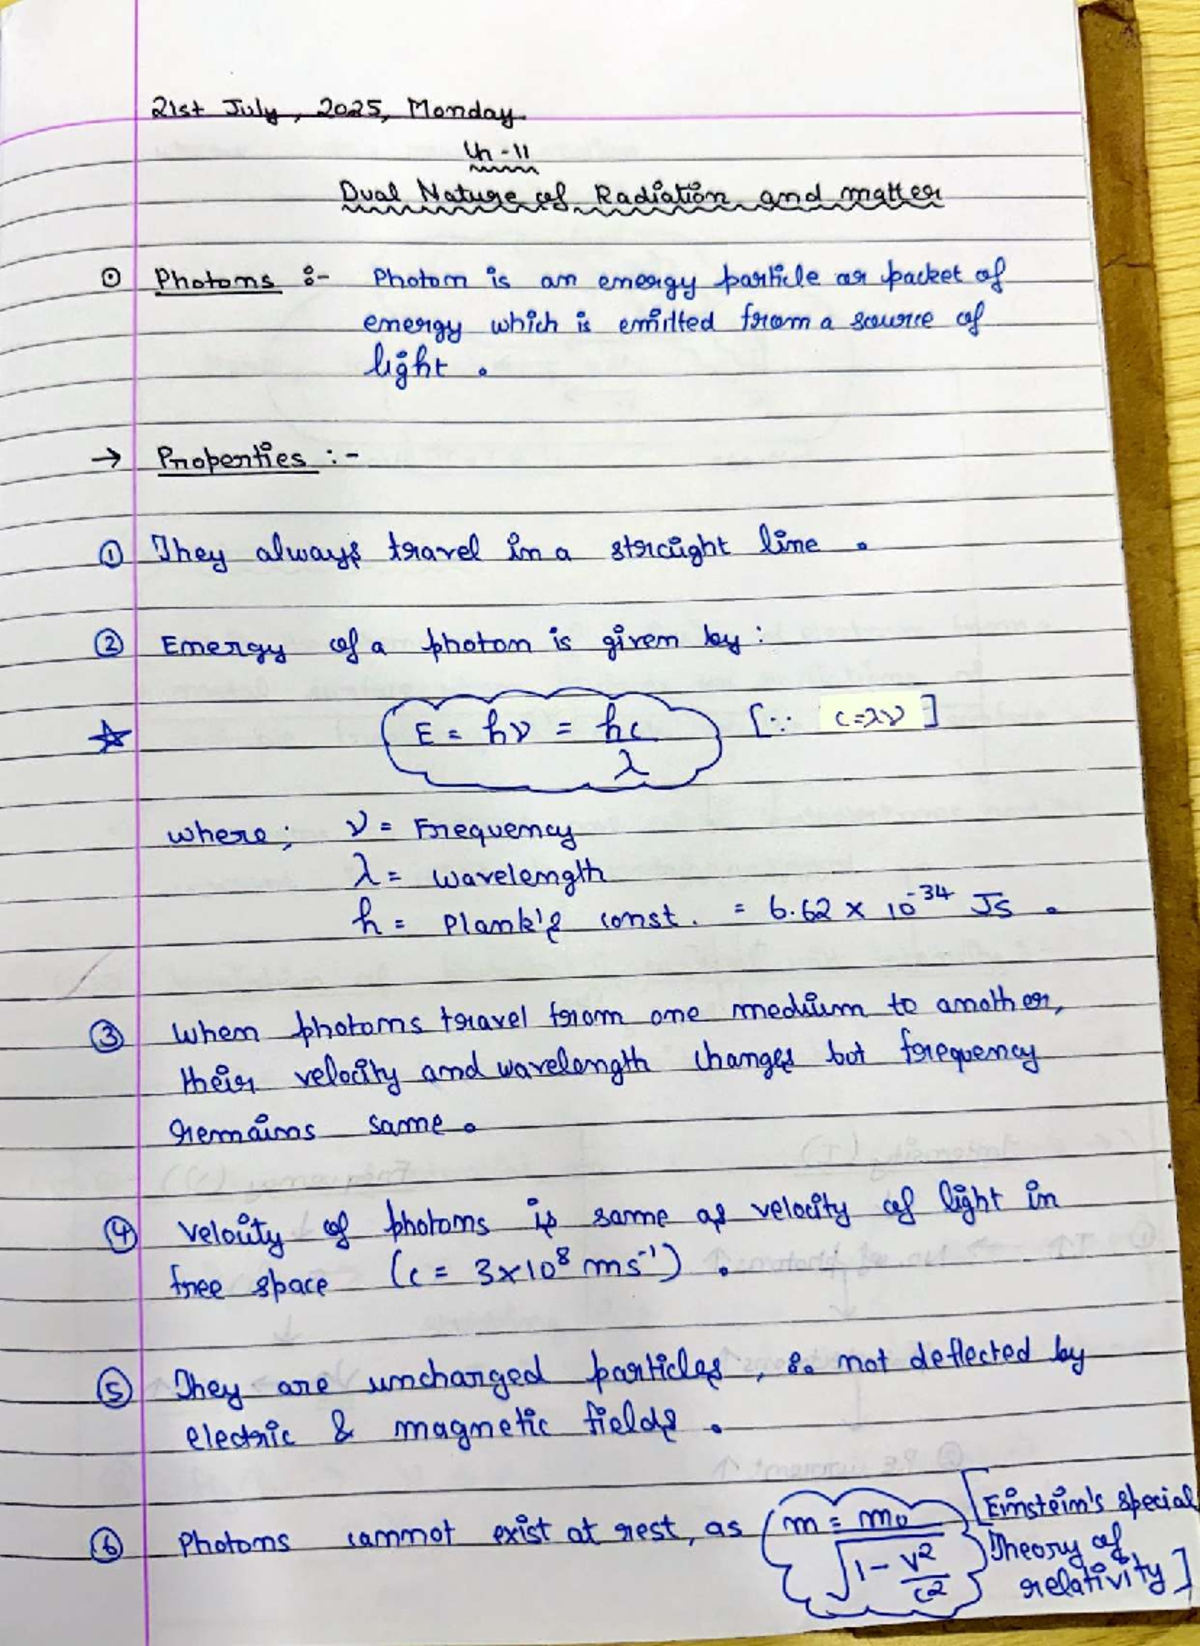 21st July, 2025, Monday.
Ch - 11
Dual Nature of Radiation and matter
① Photons :- Photon is an energy particle or packet of
energy which is emitted from a source of
light.
→ Properties :-
① They always travel in a straight line.
② Energy of a photon is given by:
☆ E = hν = hc/λ [∵ c=λν]
where; ν = Frequency
λ = wavelength
h = Plank's const. = 6.62 × 10⁻³⁴ Js.
③ When photons travel from one medium to another,
their velocity and wavelength changes but frequency
remains same.
④ Velocity of photons is same as velocity of light in
free space (c = 3×10⁸ ms⁻¹).
⑤ They are uncharged particles, so not deflected by
electric & magnetic fields.
⑥ Photons cannot exist at rest, as m = m₀/√(1 - v²/c²) [Einstein's special
Theory of
relativity]